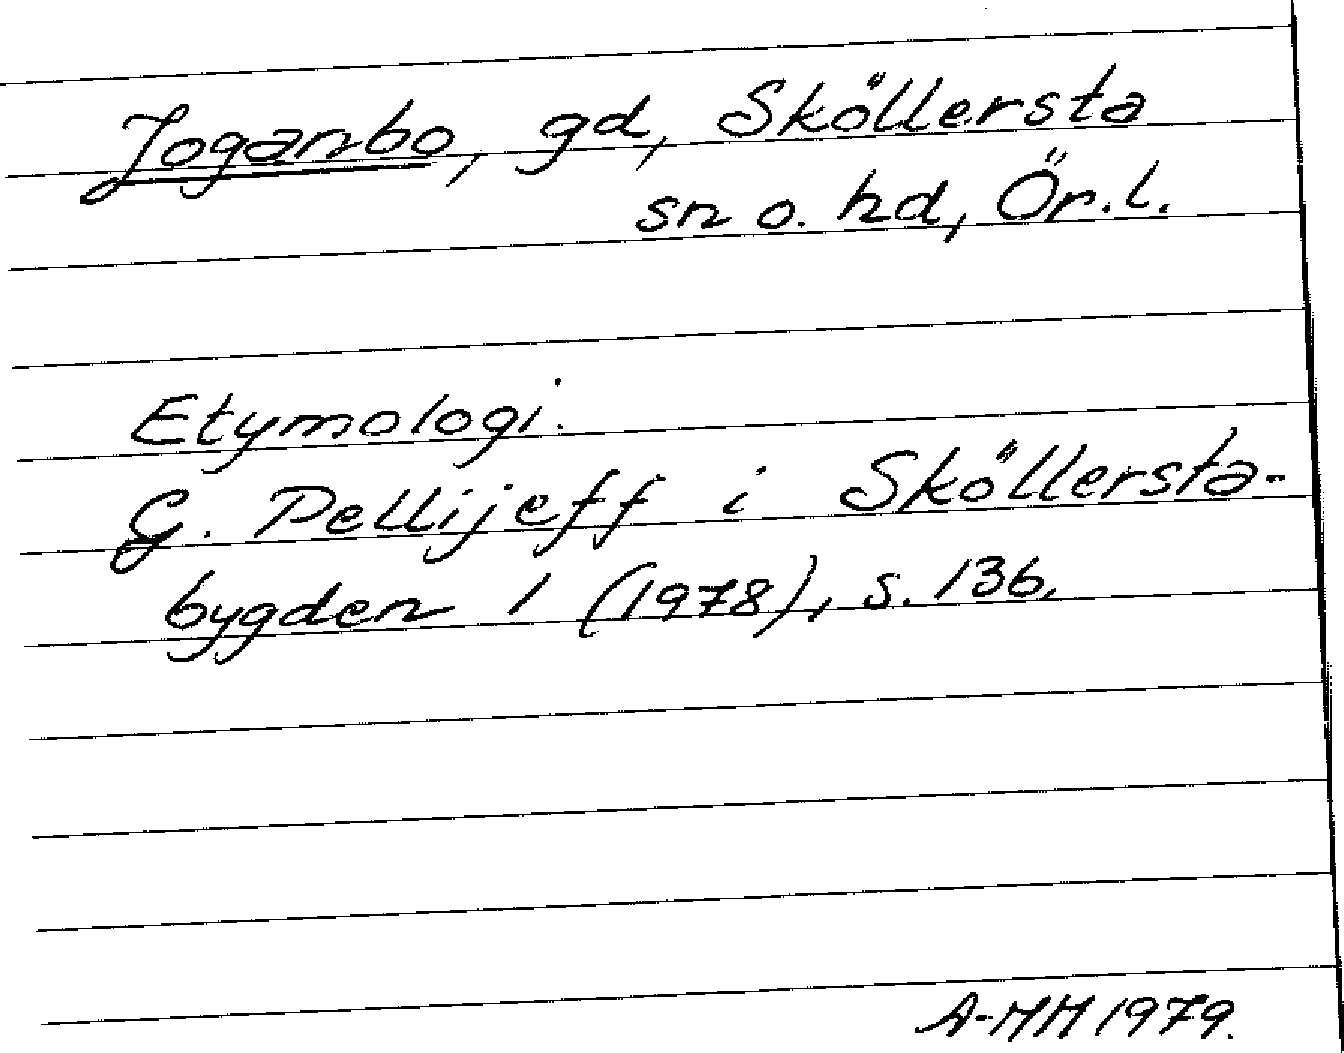 Joganbo, gd, Sköllersta
sn o. hd, Ör.l.
Etymologi.
G. Pellijeff i Sköllersta-
bygden 1 (1978), s. 136.
A-MM 1979.